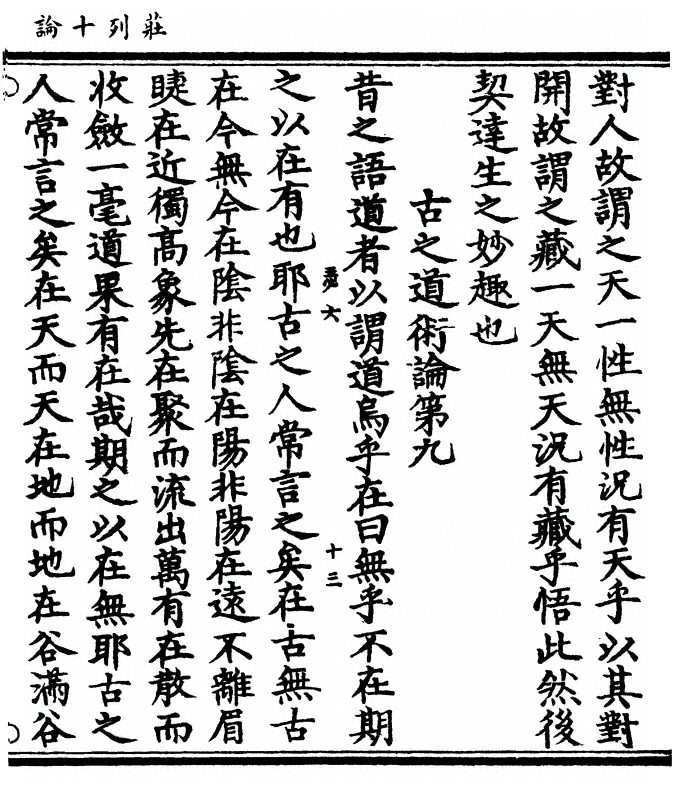 莊列十論
對人故謂之天一性無性況有天乎以其對
開故謂之藏一天無天況有藏乎悟此然後
契達生之妙趣也
古之道術論第九
昔之語道者以謂道烏乎在曰無乎不在期
六 十三
之以在有也耶古之人常言之矣在古無古
在今無今在陰非陰在陽非陽在遠不離眉
睫在近獨高象先在聚而流出萬有在散而
收斂一毫道果有在哉期之以在無耶古之
人常言之矣在天而天在地而地在谷滿谷